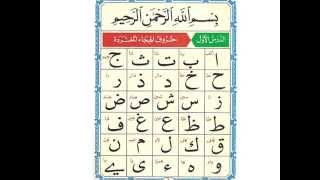 بِسْمِ اللهِ الرَّحْمٰنِ الرَّحِيْمِ
الدرس الأول حروف الهجاء المفردة
ا ب ت ث ج
ح خ د ذ ر
ز س ش ص ض
ط ظ ع غ ف
ق ك ل م ن
و ه ء ي ے